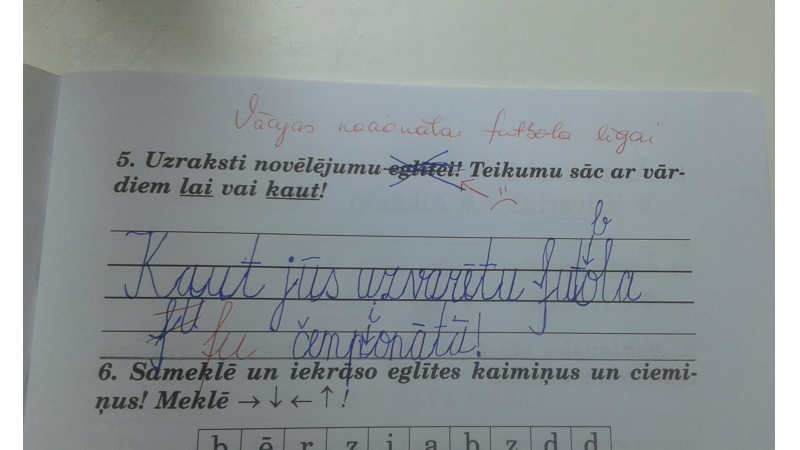 Vācijas nacionālai futbola līgai
5. Uzraksti novēlējumu eglītei! Teikumu sāc ar vār-
diem lai vai kaut!
b
Kaut jūs uzvarētu futola
fu fu i čemponātā!
6. Sameklē un iekrāso eglītes kaimiņus un ciemi-
ņus! Meklē → ↓ ← ↑ !
b ē r z i a b z d d